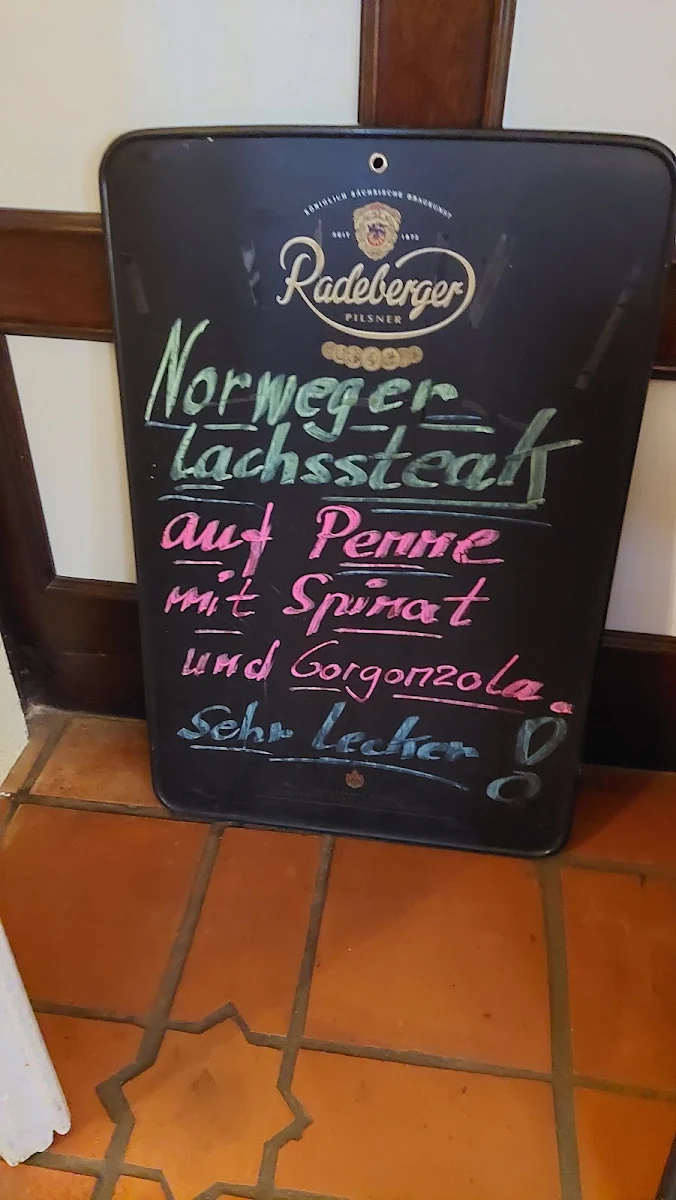 KÖNIGLICH SÄCHSISCHE BRAUKUNST
SEIT 1872
Radeberger
PILSNER
Norweger
Lachssteak
auf Penne
mit Spinat
und Gorgonzola.
Sehr lecker!